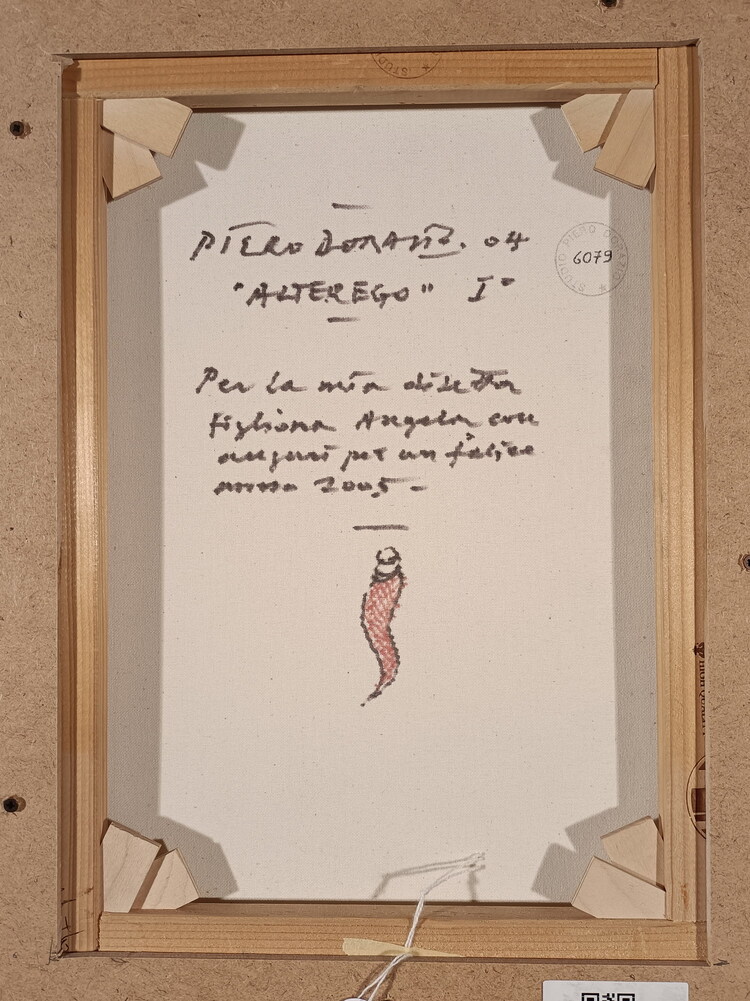 PIERO DORAZIO. 04
"ALTEREGO" I°
Per la mia diletta
figliona Angela con
auguri per un felice
anno 2005-
STUDIO PIERO DORAZIO
6079
STUDI
HIGH QUALITY